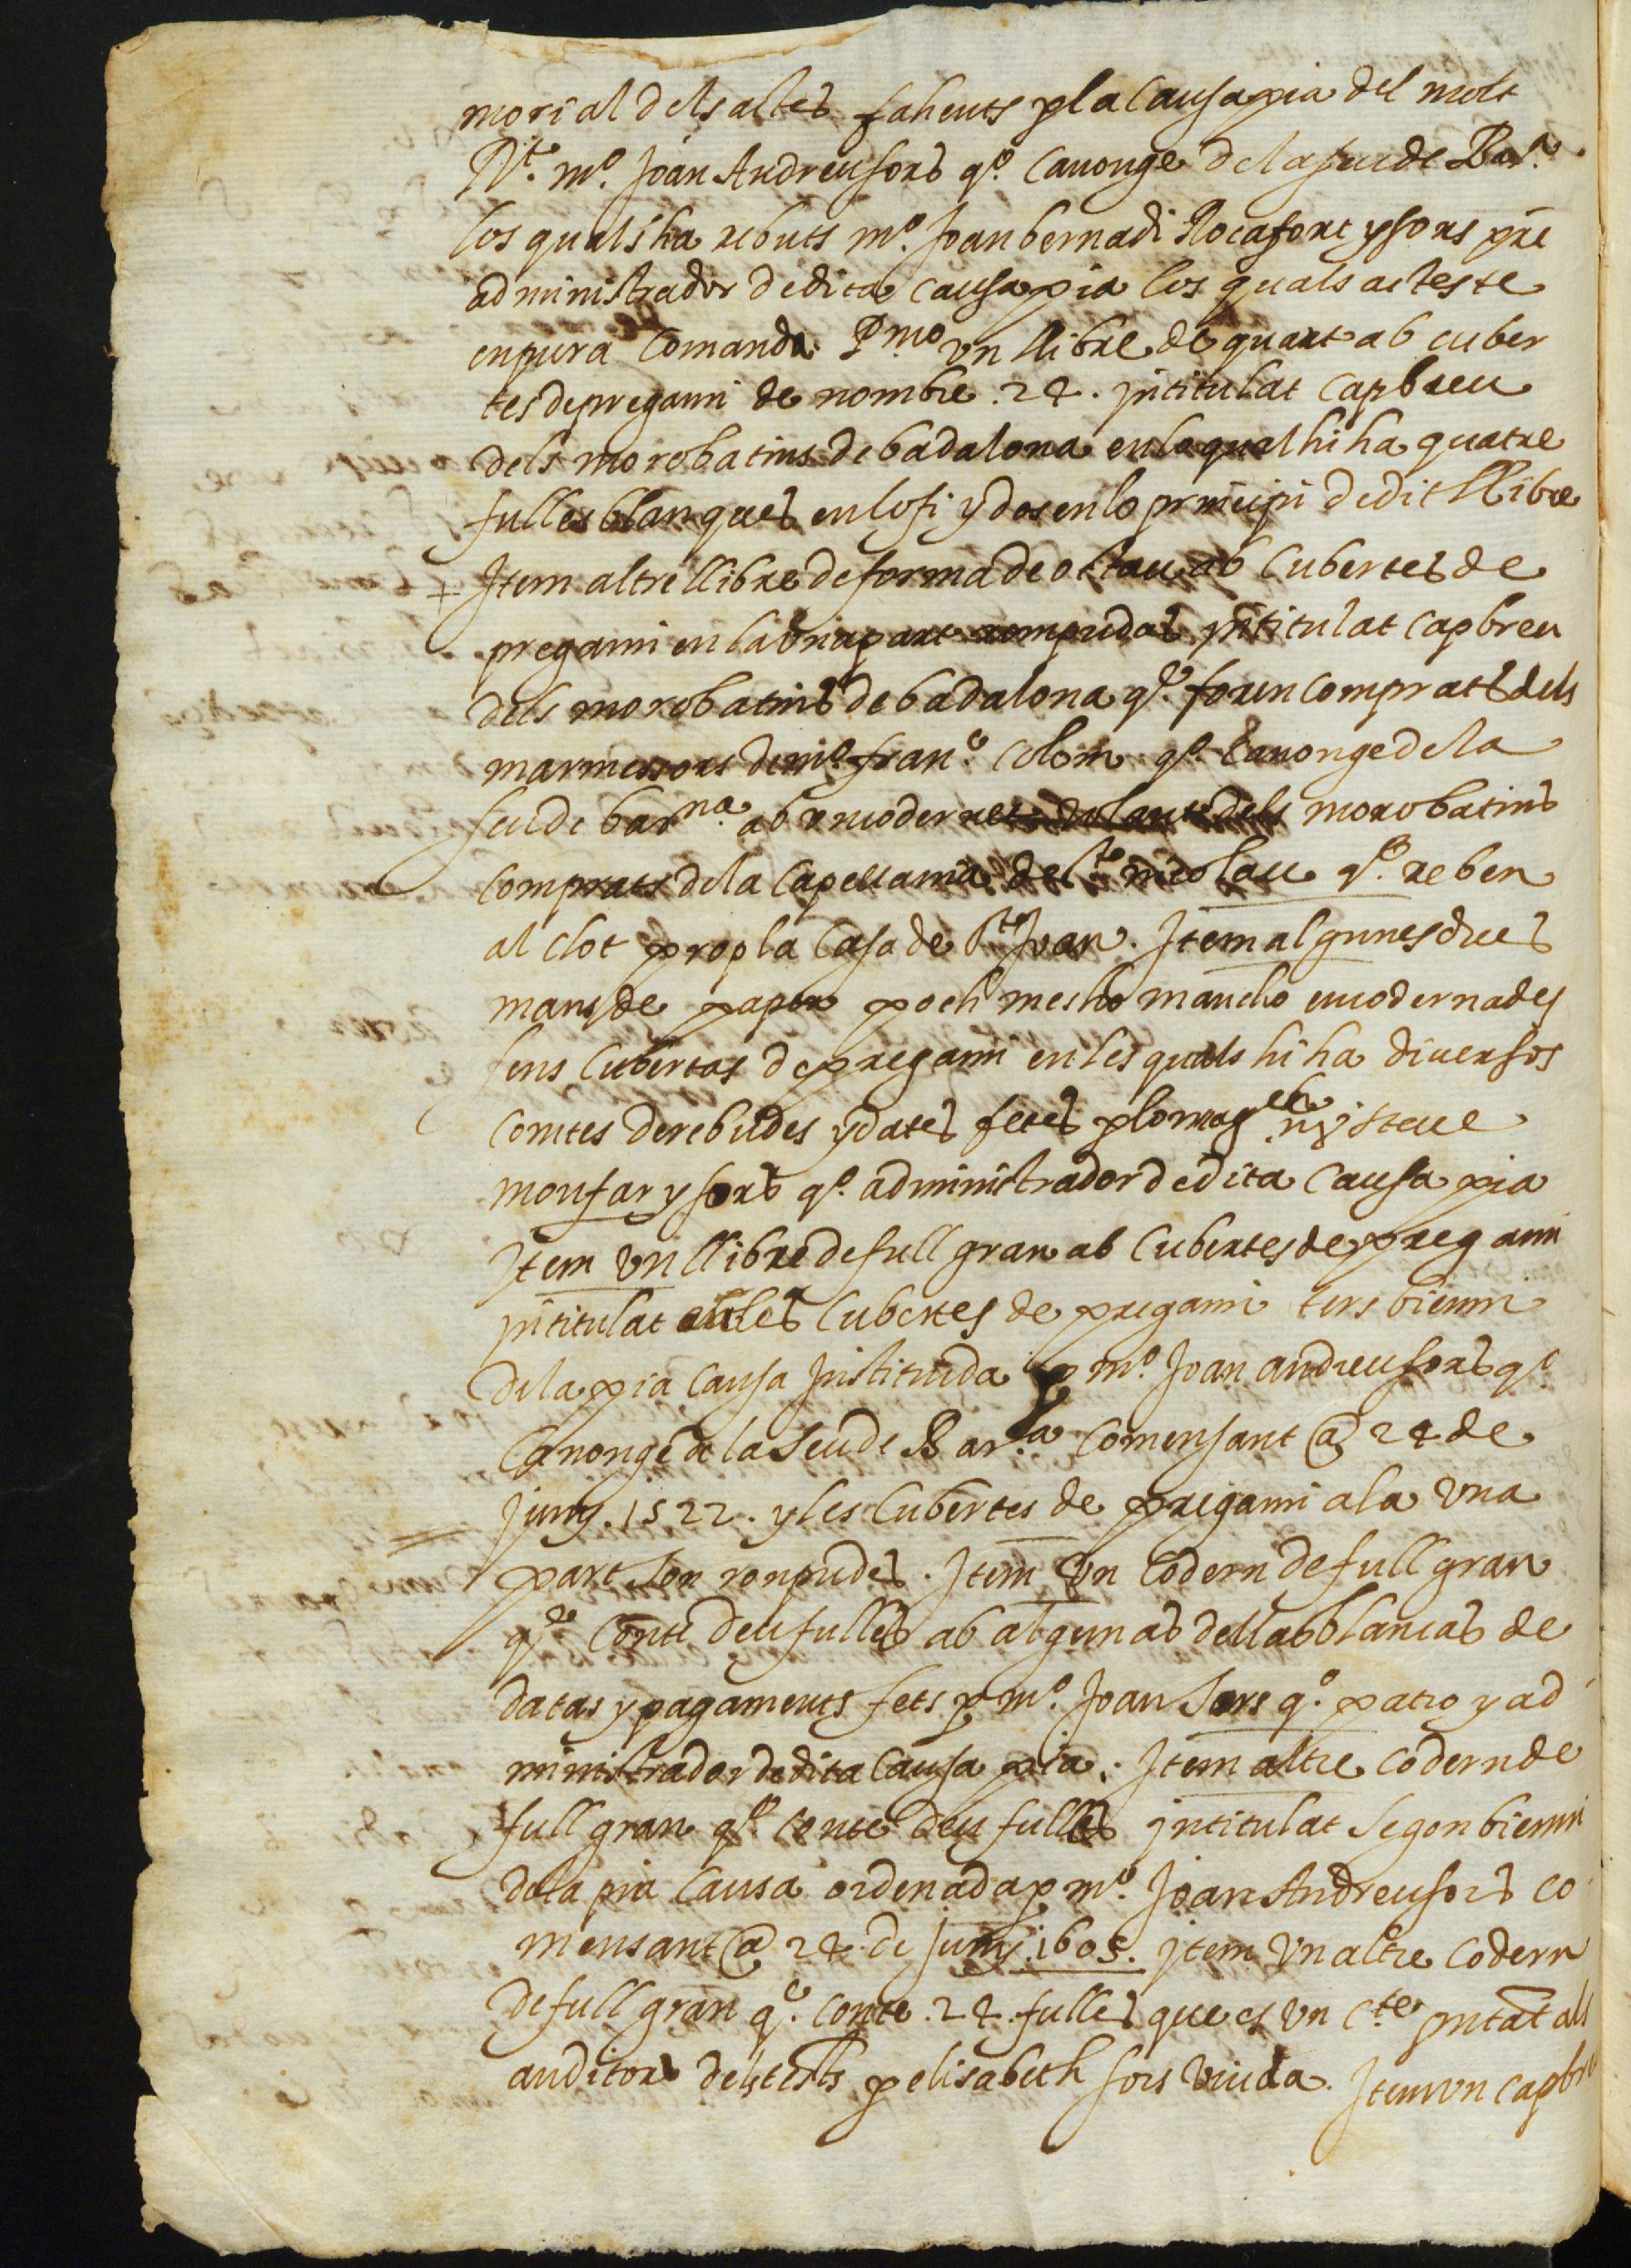 morial dels actes fahents p la causa pia del molt
Rt. mº. Joan Andreu sors qº. Canonge de la seu de Barª.
los quals ha rebuts mº. Joan bernadi Rocafort y sors pre
administrador de dita causa pia los quals actes te
en pura comanda. Pmo un llibre de quart ab cuber
tes de pregami de nombre .24. intitulat capbreu
dels morobatins de badalona en lo qual hi ha quatre
fulles blanques en lo fi y dos en lo principi de dit llibre
+ Item altre llibre de forma de octau ab cubertes de
pregami en la una part rompudas intitulat capbreu
dels morobatins de badalona qe. foren comprats dels
marmessors de mº. franc. Colom qº. canonge de la
seu de barna. ab los morobatins
comprats de la capellania de St nicolau qe. reben
al clot prop la casa de St Joan. Item algunes dues
mans de paper poch mes ho mancho encodernades
sens cubertas de pregami en les quals hi ha diversos
comtes de rebudes y dates fetes p lo mag ch steve
monfar y sors qº. administrador de dita causa pia
Item un llibre de full gran ab cubertes de pregami
intitulat en les cubertes de pregami ters bienni
de la pia causa instituida p mº. Joan andreu sors qº
Canonge de la seu de Bar.a comensant @ 24 de
juny. 1522. y les cubertes de pregami a la una
part son ronpudes. Item un codern de full gran
qe conte deu fulles ab algunas dellas blancas de
datas y pagaments fets p mº. Joan Sors qº. patro y ad
ministrador de dita causa pia. Item altre codern de
full gran qe. conte deu fulles intitulat segon bienni
de la pia causa ordenada p mº. Joan Andreu sors co
mensant @ 24. de juny 1605. item un altre codern
de full gran qe. conte .24. fulles que es un cte pntat als
auditors dels tests p elisabeth sors viuda. Item un capbre